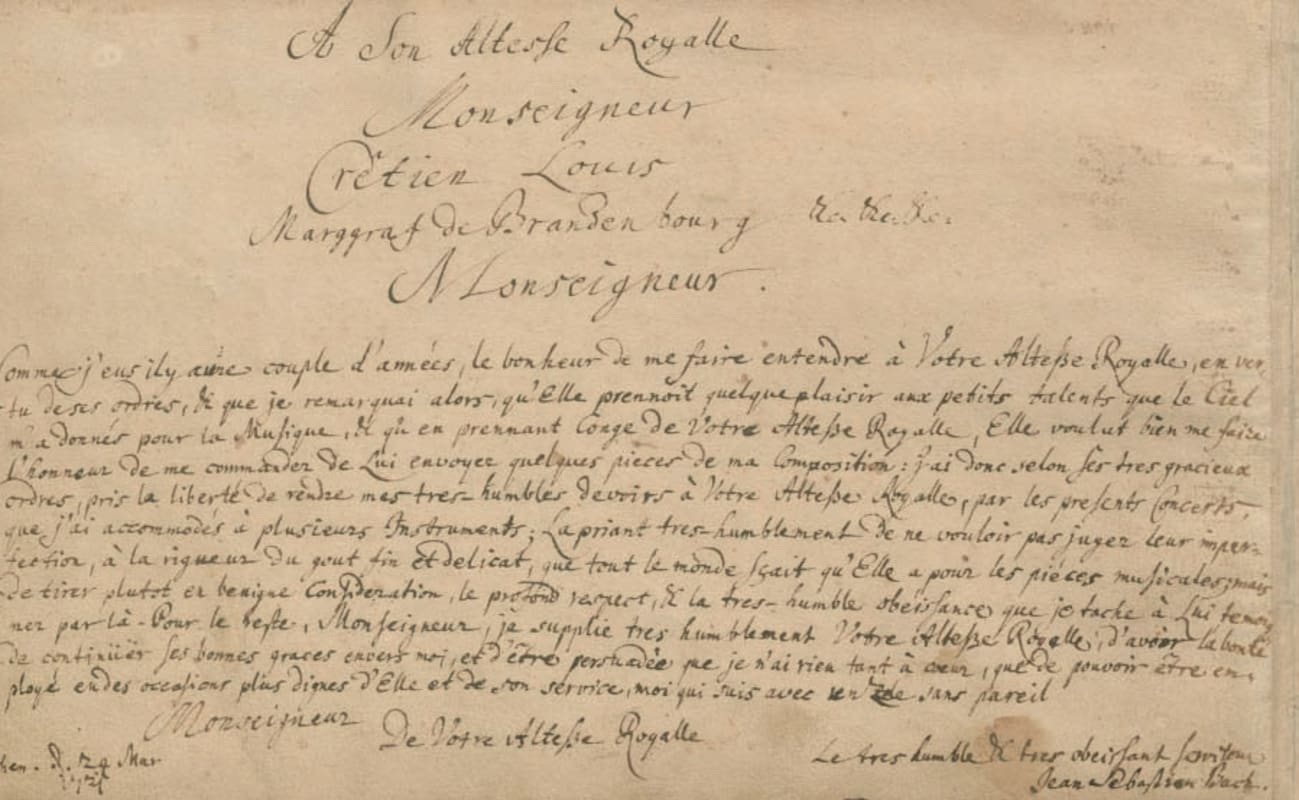 A Son Altesse Royalle
Monseigneur
Crêtien Louis
Marggraf de Brandenbourg &c. &c. &c.
Monseigneur.
Comme j'eus il y a une couple d'années, le bonheur de me faire entendre à Votre Alteße Royalle, en ver-
tu de ses ordres, & que je remarquai alors, qu'Elle prennoit quelque plaisir aux petits talents que le Ciel
m'a donnés pour la Musique, & qu'en prennant Conge de Votre Alteße Royalle, Elle voulut bien me faire
l'honneur de me commander de Lui envoyer quelques pieces de ma Composition: j'ai donc selon ses tres gracieux
ordres, pris la liberté de rendre mes tres-humbles devoirs à Votre Alteße Royalle, par les presents Concerts,
que j'ai accommodés à plusieurs Instruments; La priant tres-humblement de ne vouloir pas juger leur imper-
fection, à la rigueur du gout fin et delicat, que tout le monde sçait qu'Elle a pour les piéces musicales; mais
de tirer plutot en benigne Consideration, le profond respect, & la tres-humble obeissance que je tache à Lui temoig
ner par là. Pour le reste, Monseigneur, je supplie tres humblement Votre Alteße Royalle, d'avoir la bonté
de continüer ses bonnes graces envers moi, et d'être persuadée que je n'ai rien tant à cœur, que de pouvoir être em-
ployé en des occasions plus dignes d'Elle et de son service, moi qui suis avec un zele sans pareil
Monseigneur
De Votre Alteße Royalle
hen. d. 24 Mar
1721
Le tres humble & tres obeissant serviteur
Jean Sebastien Bach.